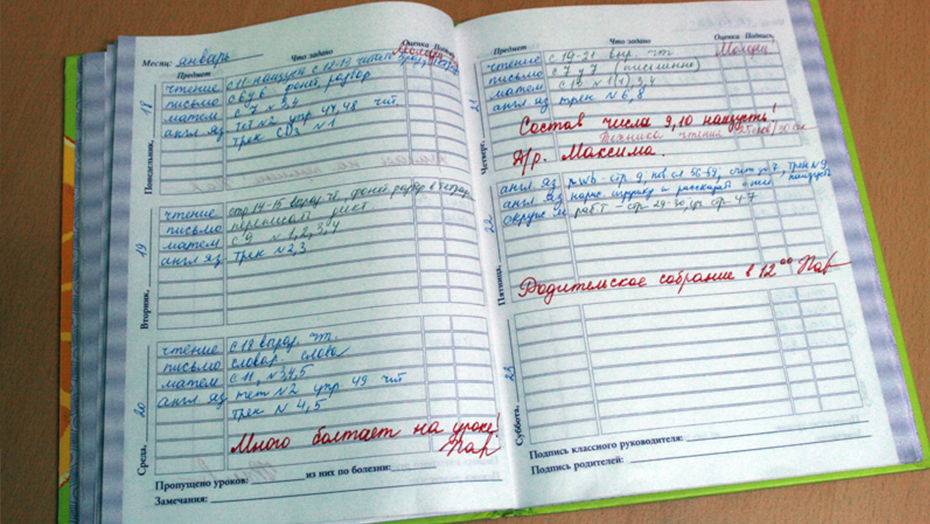 Месяц: январь
Предмет Что задано Оценка Подпись
Понедельник, 18
чтение с 11-наизуст с 12-13 читать
письмо с 6 у 6 фонет. разбор
матем с 7 № 3,4
англ яз тет №2 упр 47,48 чит
трек СДЗ №1
Вторник, 19
чтение стр 14-15 выраз. чт, фонет. разбор в тетрад
письмо переписать дикт
матем с 9 № 1,2,3,4
англ яз трек №2,3
Среда, 20
чтение с 18 выраз. чт.
письмо словар. слова
матем с 11, №3,4,5
англ яз тет №2 упр 49 чит
трек № 4,5
Много болтает на уроке!
Пропущено уроков: из них по болезни:
Замечания:
Предмет Что задано Оценка Подпись
Молодец!
Четверг, 21
чтение с 19-21 выр. чт
письмо с 7 у 7 (письменно)
матем с 12 № 1(1), 3,4
англ яз трек № 6,8
Состав числа 9,10 наизусть!
Техника чтения
Д/р. Максима.
Пятница, 22
англ яз стр. 9, трек №9,
англ яз игрушку и рассказать о ней наизусть
окруж м работ - стр 29-30, уч стр 47
Родительское собрание в 12 00
Суббота, 23
Подпись классного руководителя:
Подпись родителей: